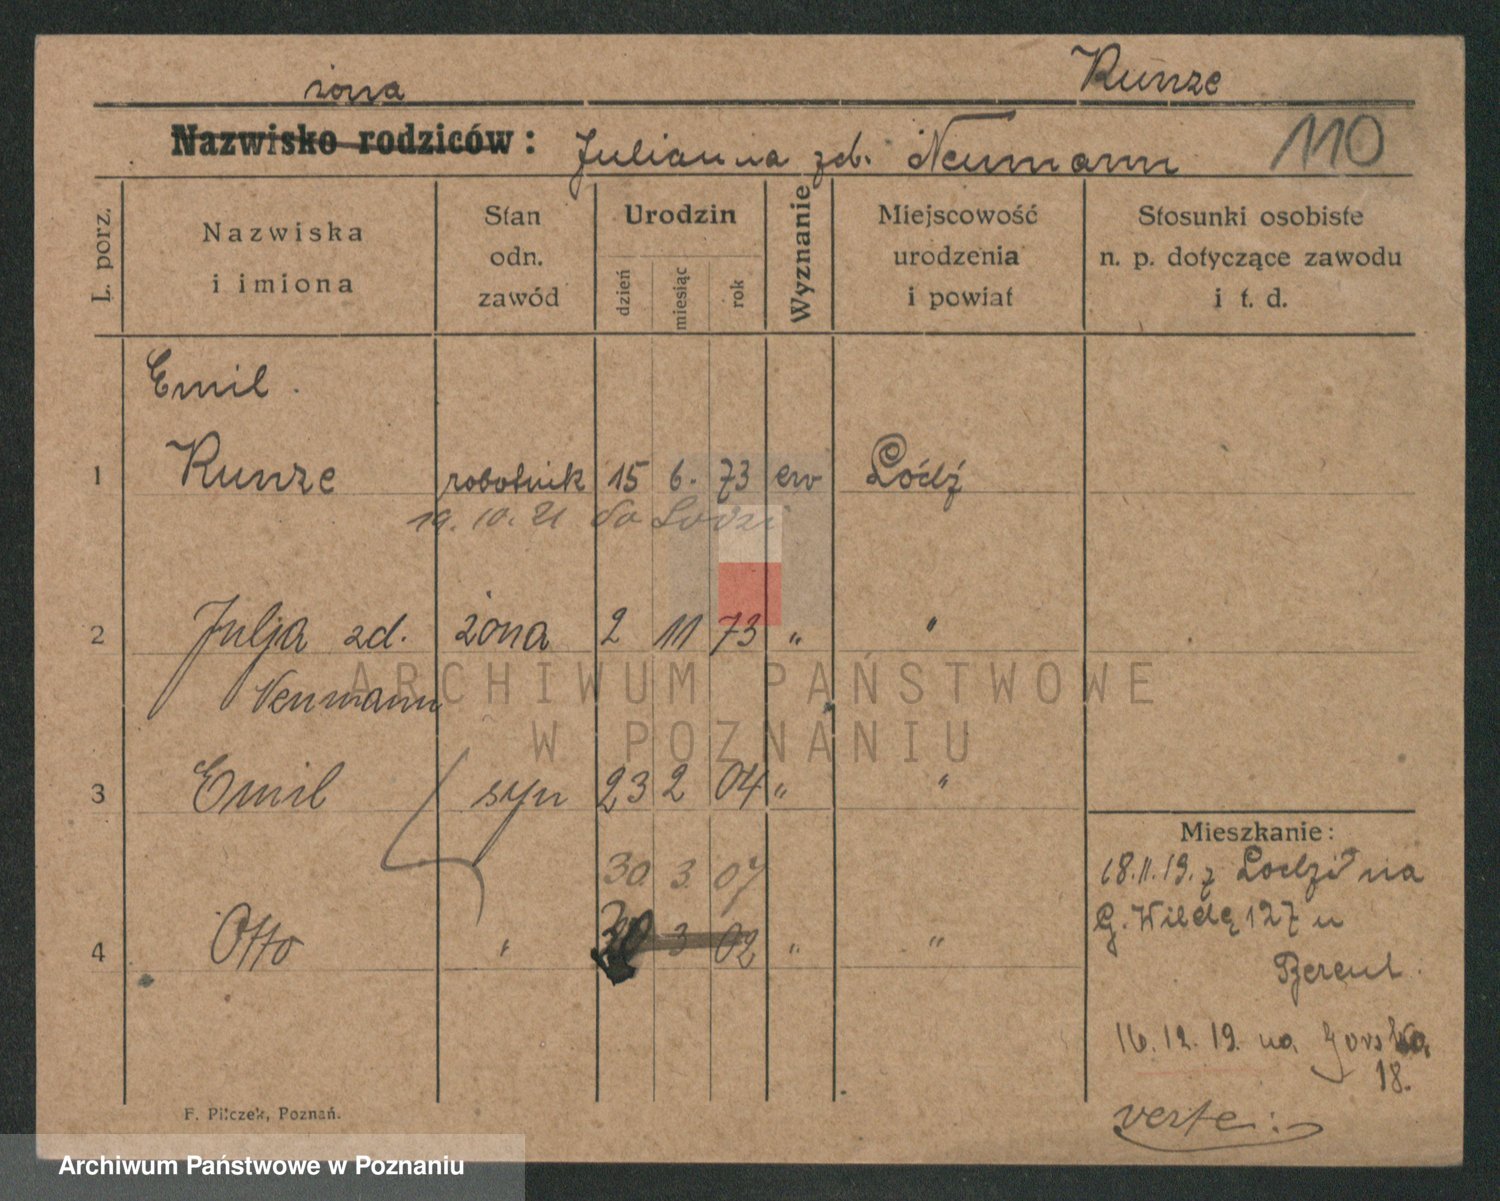 żona Kunze
Nazwisko rodziców : Julianna zd. Neumann 110
L. porz.
Nazwiska
i imiona
Stan
odn.
zawód
Urodzin
dzień
miesiąc
rok
Wyznanie
Miejscowość
urodzenia
i powiat
Stosunki osobiste
n. p. dotyczące zawodu
i t. d.
Emil
1 Kunze robotnik 15 6. 73 ew Łódź
19. 10. 21 do Lodzi
2 Julja zd. żona 2 111 73 " "
Neumann
3 Emil syn 23 2 04 " "
30. 3. 07
4 Otto " 30 3 02 " "
Mieszkanie :
18.11.19. z Lodzi na
G. Wildę 127 u
Berent.
16. 12. 19. na Gorska
18.
verte :
F. Pilczek, Poznań.
ARCHIWUM PAŃSTWOWE
W POZNANIU
Archiwum Państwowe w Poznaniu